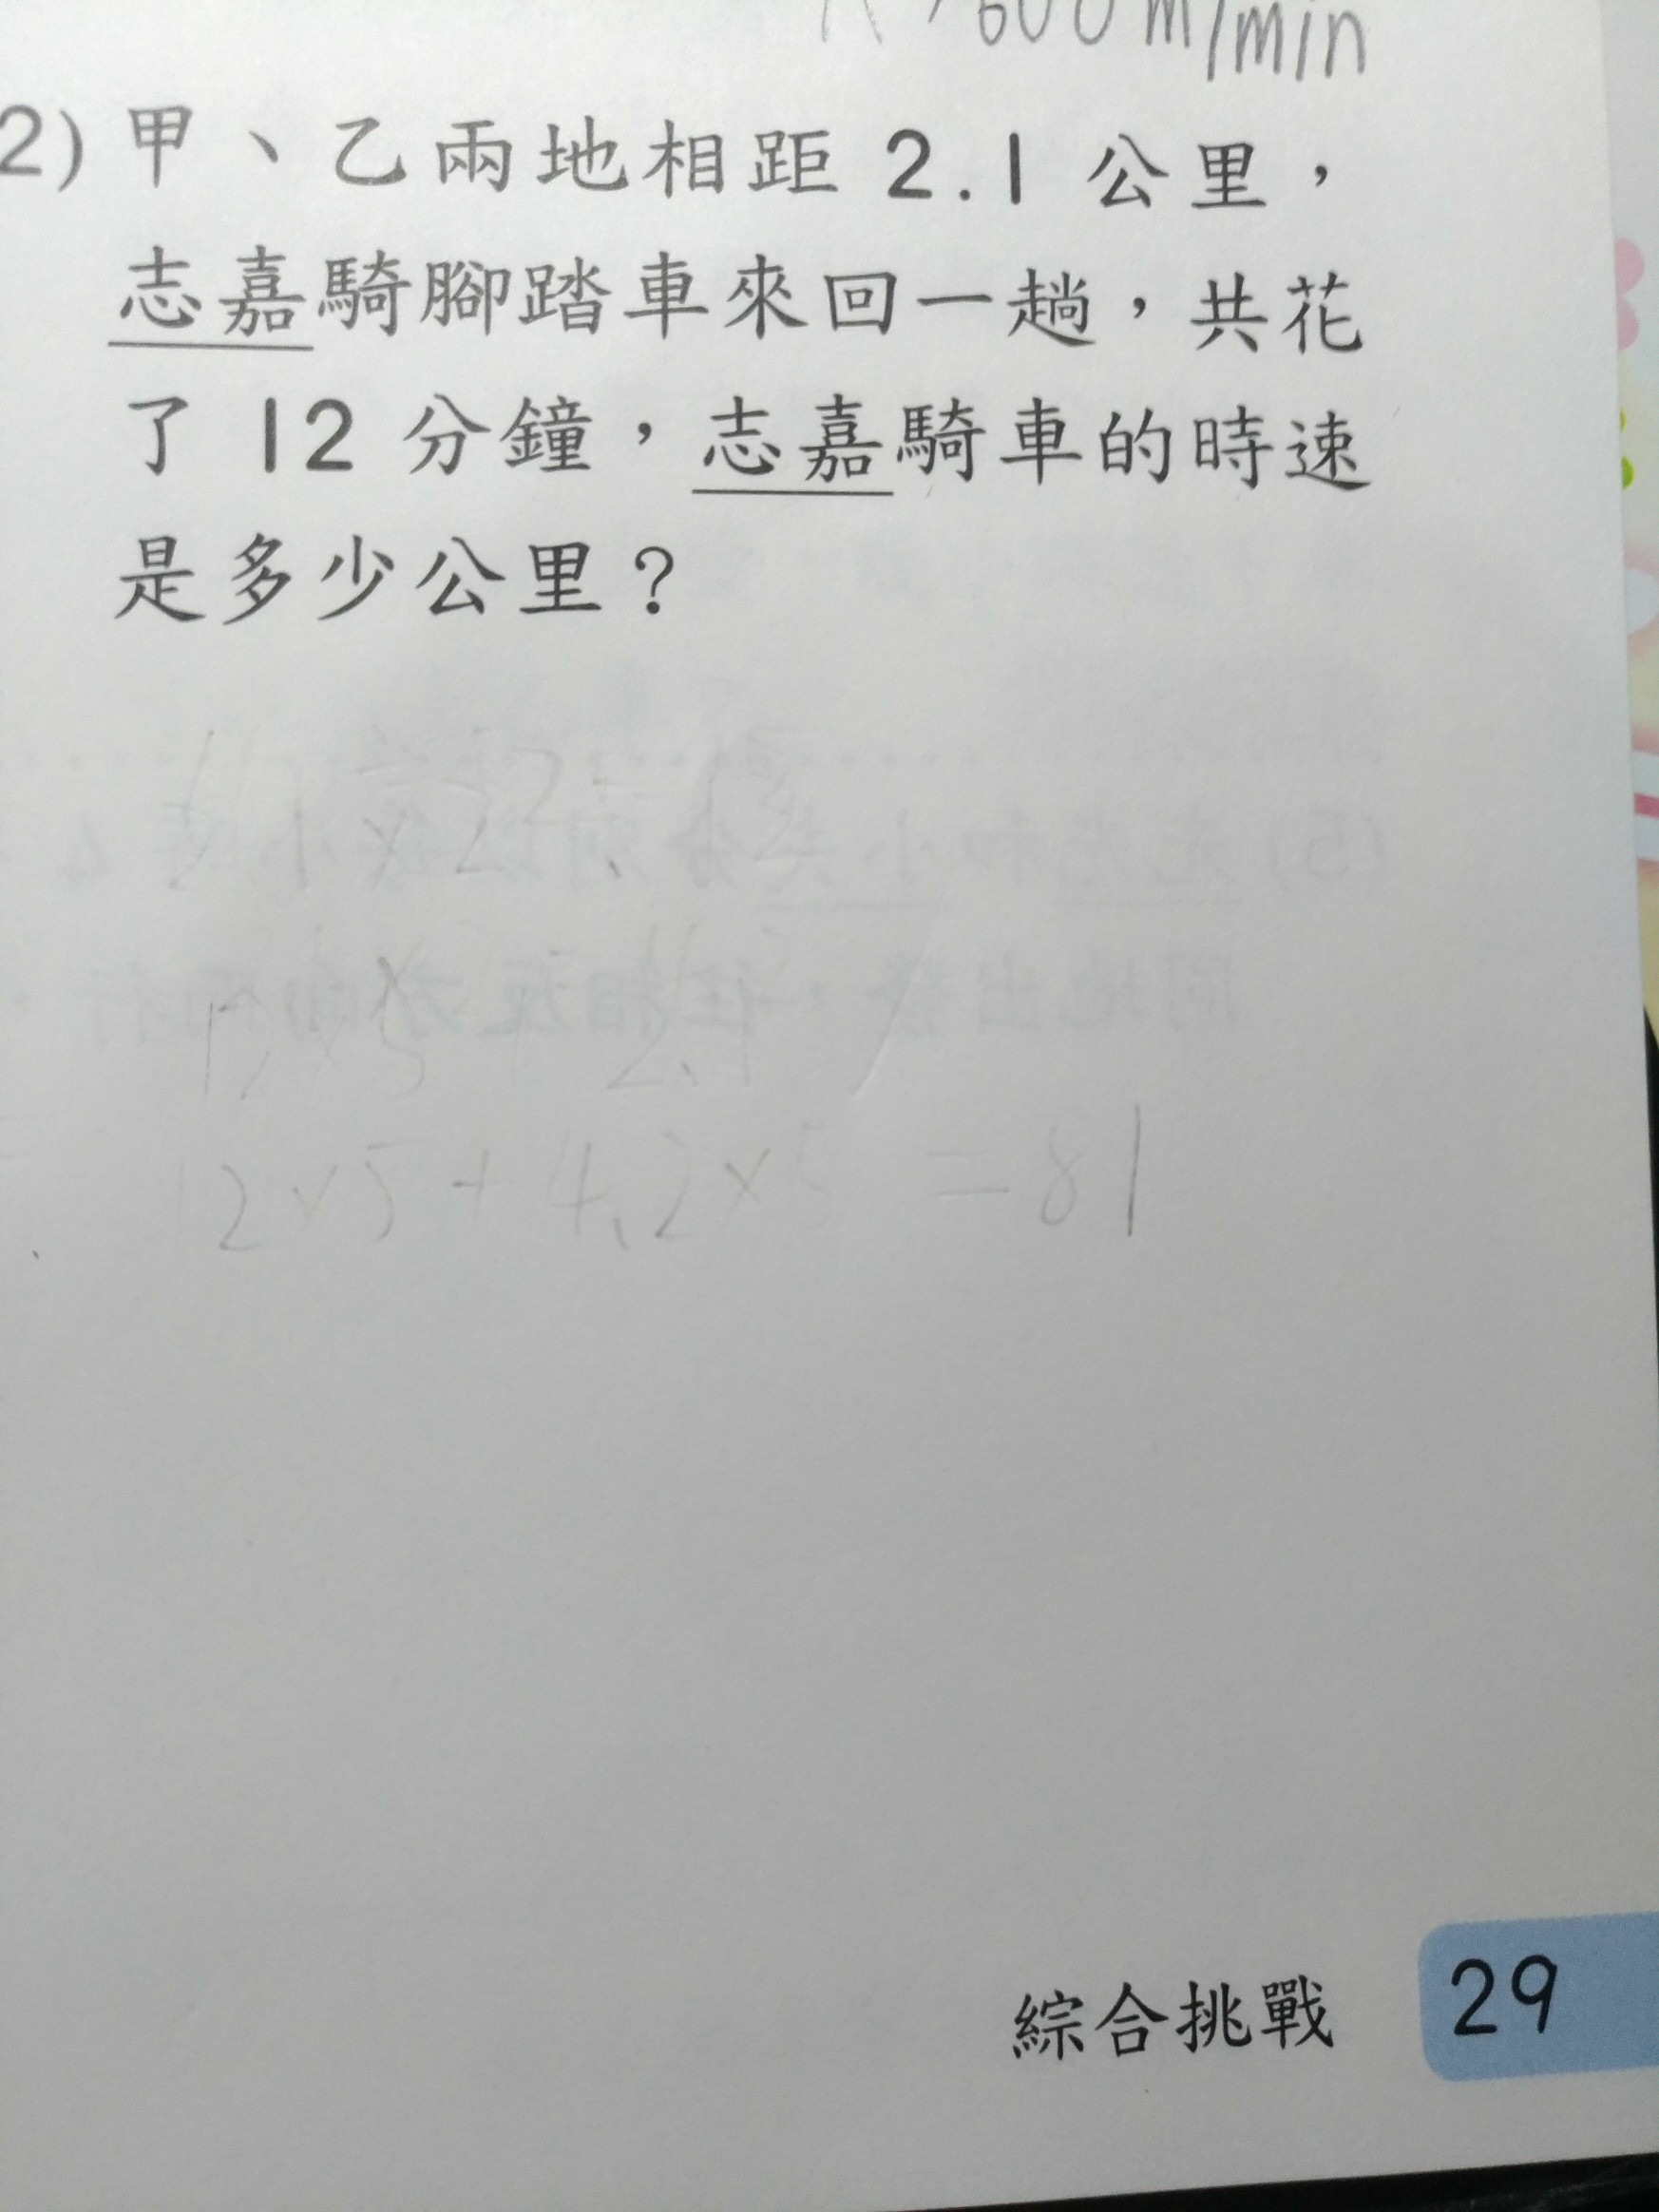 600 m/min
2) 甲、乙兩地相距 2.1 公里，
志嘉騎腳踏車來回一趟，共花
了 12 分鐘，志嘉騎車的時速
是多少公里？
2.1
12×5+4.2×5 =81
綜合挑戰 29